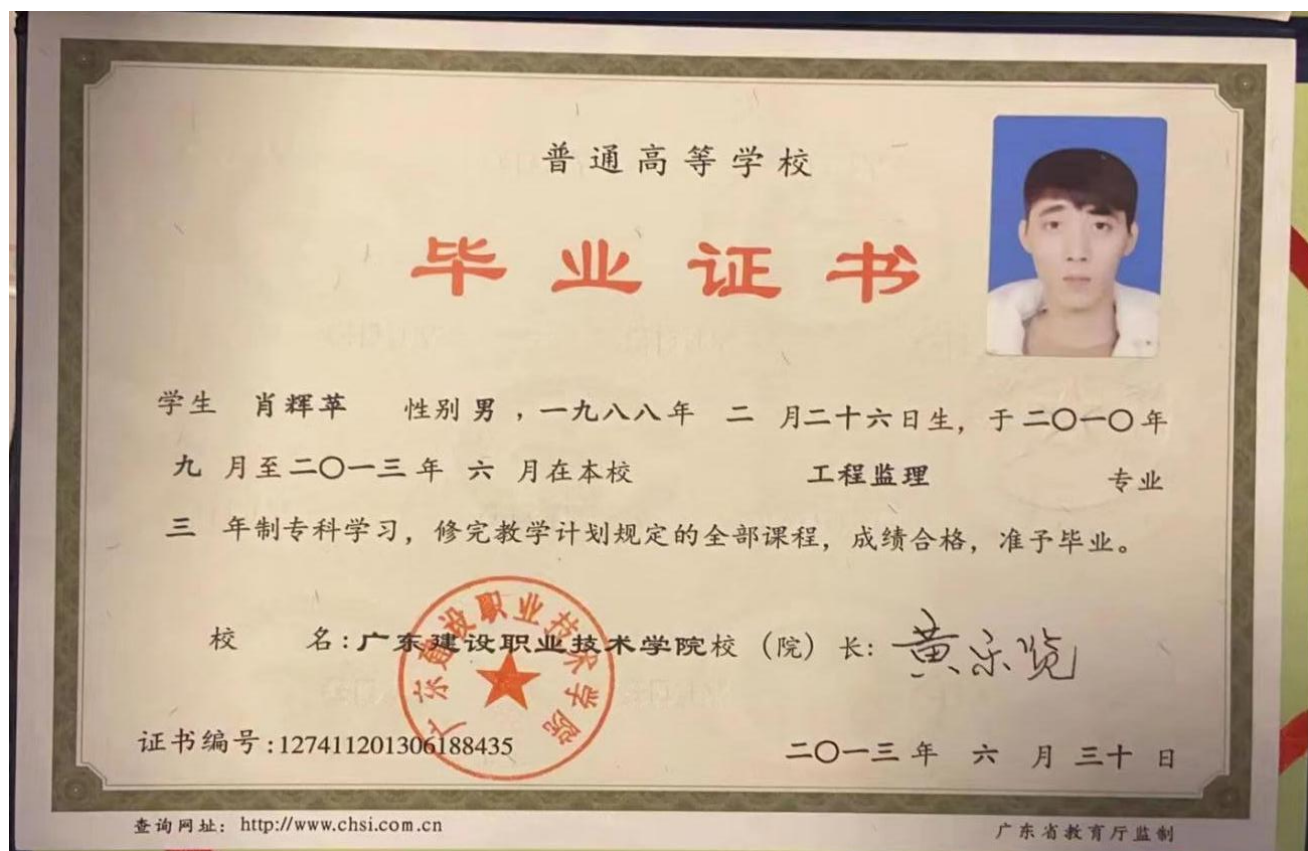 普通高等学校
毕业证书
学生 肖辉苹 性别 男 ，一九八八年 二 月二十六日生，于二〇一〇年
九 月至二〇一三年 六 月在本校 工程监理 专业
三 年制专科学习，修完教学计划规定的全部课程，成绩合格，准予毕业。
校 名：广东建设职业技术学院校（院）长：
广东建设职业技术学院
证书编号：127411201306188435 二〇一三年 六 月 三十 日
查询网址：http://www.chsi.com.cn 广东省教育厅监制